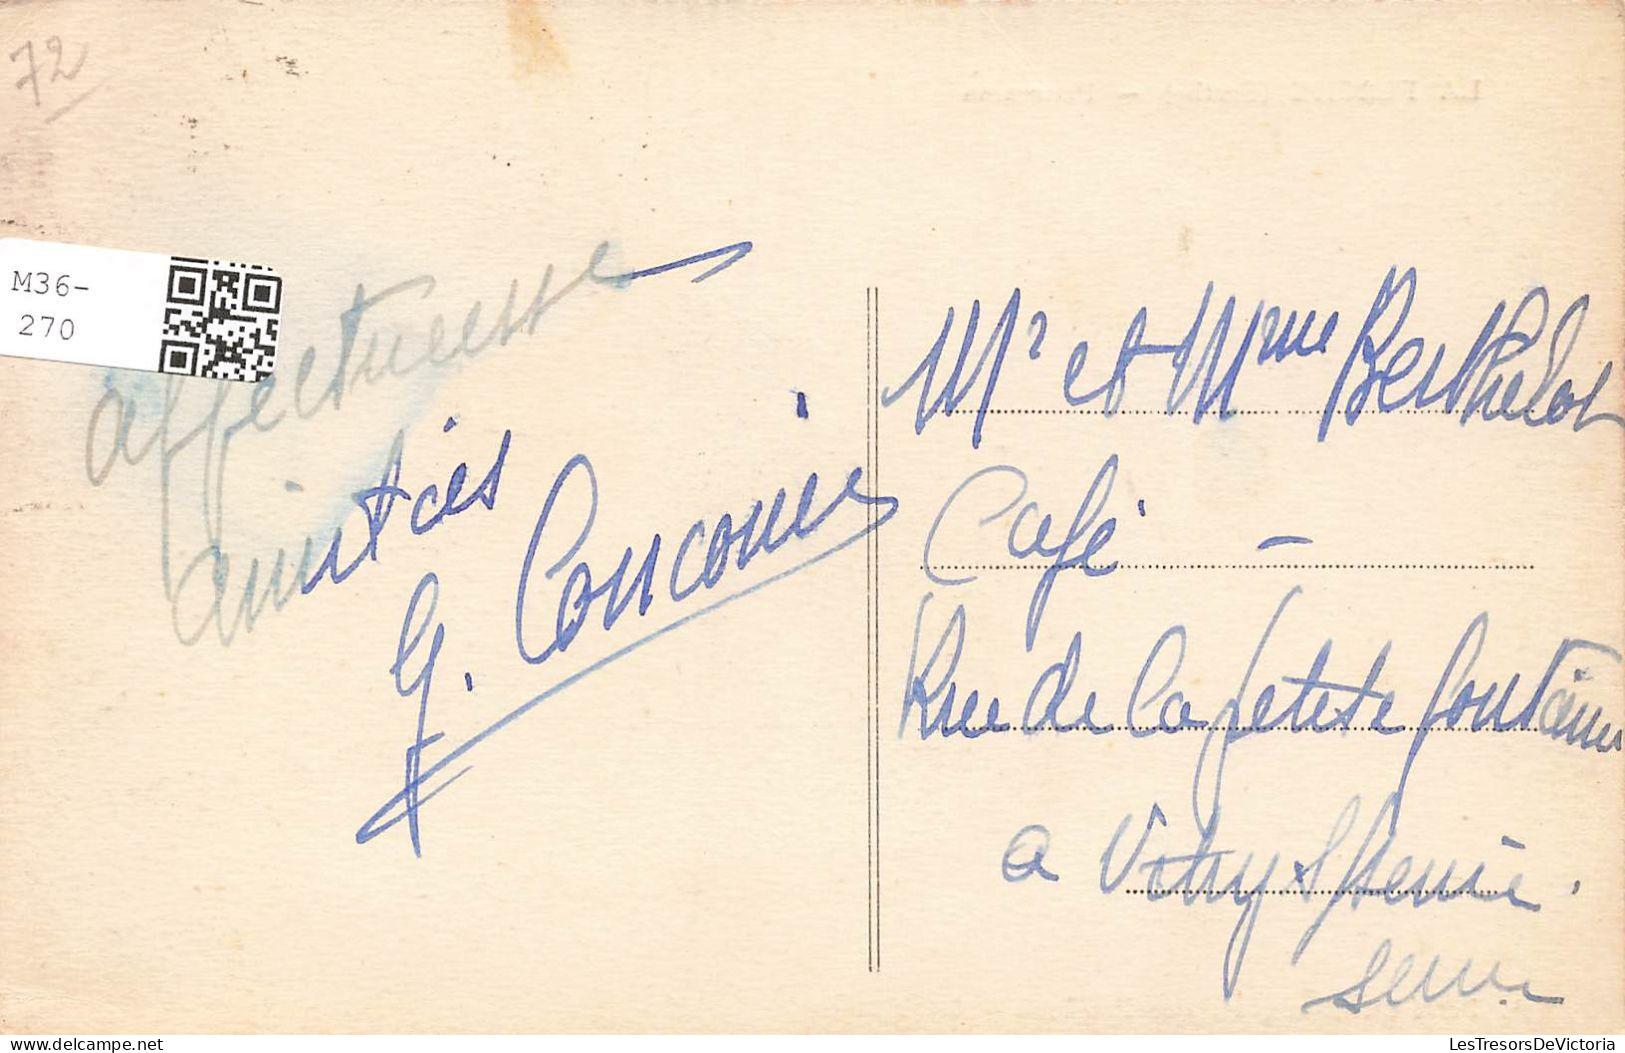 72
M36-
270
affectueuse
amitiés
G.
Mr et Mme Berthelot
Café -
Rue de la petite fontaine
a Vitry S/Seine.
Seine
Delcampe.net
LesTresorsDeVictoria